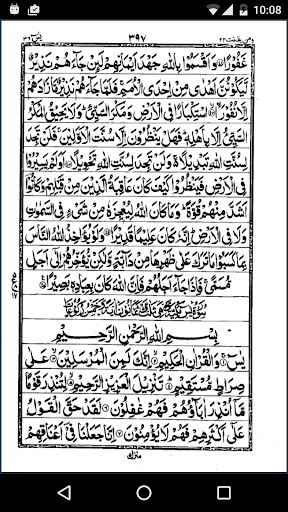 10:08
٣٩٧
غَفُوْرًا۝ وَاَقْسَمُوْا بِاللّٰهِ جَهْدَ اَيْمَانِهِمْ لَئِنْ جَآءَهُمْ نَذِيْرٌ
لَّيَكُوْنُنَّ اَهْدٰى مِنْ اِحْدَى الْاُمَمِ ۚ فَلَمَّا جَآءَهُمْ نَذِيْرٌ مَّا زَادَهُمْ
اِلَّا نُفُوْرًا۝ اسْتِكْبَارًا فِى الْاَرْضِ وَمَكْرَ السَّيِّئِ ؕ وَلَا يَحِيْقُ الْمَكْرُ
السَّيِّئُ اِلَّا بِاَهْلِهٖ ؕ فَهَلْ يَنْظُرُوْنَ اِلَّا سُنَّتَ الْاَوَّلِيْنَ ۚ فَلَنْ تَجِدَ
لِسُنَّتِ اللّٰهِ تَبْدِيْلًا ۚ وَلَنْ تَجِدَ لِسُنَّتِ اللّٰهِ تَحْوِيْلًا۝ اَوَلَمْ يَسِيْرُوْا
فِى الْاَرْضِ فَيَنْظُرُوْا كَيْفَ كَانَ عَاقِبَةُ الَّذِيْنَ مِنْ قَبْلِهِمْ وَكَانُوْٓا
اَشَدَّ مِنْهُمْ قُوَّةً ؕ وَمَا كَانَ اللّٰهُ لِيُعْجِزَهٗ مِنْ شَىْءٍ فِى السَّمٰوٰتِ
وَلَا فِى الْاَرْضِ ؕ اِنَّهٗ كَانَ عَلِيْمًا قَدِيْرًا۝ وَلَوْ يُؤَاخِذُ اللّٰهُ النَّاسَ
بِمَا كَسَبُوْا مَا تَرَكَ عَلٰى ظَهْرِهَا مِنْ دَآبَّةٍ وَّلٰكِنْ يُّؤَخِّرُهُمْ اِلٰٓى اَجَلٍ
مُّسَمًّى ۚ فَاِذَا جَآءَ اَجَلُهُمْ فَاِنَّ اللّٰهَ كَانَ بِعِبَادِهٖ بَصِيْرًا۝
بِسْمِ اللّٰهِ الرَّحْمٰنِ الرَّحِيْمِ
يٰسٓ۝ وَالْقُرْاٰنِ الْحَكِيْمِ۝ اِنَّكَ لَمِنَ الْمُرْسَلِيْنَ۝ عَلٰى
صِرَاطٍ مُّسْتَقِيْمٍ۝ تَنْزِيْلَ الْعَزِيْزِ الرَّحِيْمِ۝ لِتُنْذِرَ قَوْمًا
مَّآ اُنْذِرَ اٰبَآؤُهُمْ فَهُمْ غٰفِلُوْنَ۝ لَقَدْ حَقَّ الْقَوْلُ
عَلٰٓى اَكْثَرِهِمْ فَهُمْ لَا يُؤْمِنُوْنَ۝ اِنَّا جَعَلْنَا فِىْٓ اَعْنَاقِهِمْ
منزل